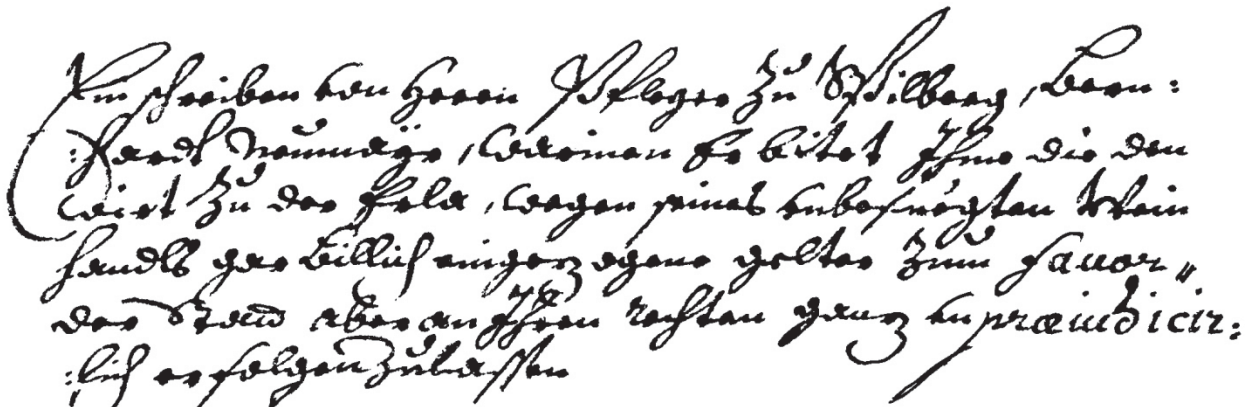 Ein schreiben von Herrn Pfleger zu Spilberg, Bern:
:hardt Neumäyr, warinen Er bitet Ihme die den
Wirt zu der Feldt, wegen seines unbefuegten Wein
handls gar billich eingezogene gelter zum favor
der Stadt aber an Ihren rechten ganz unpraeiudicir:
:lich erfolgen zulassen